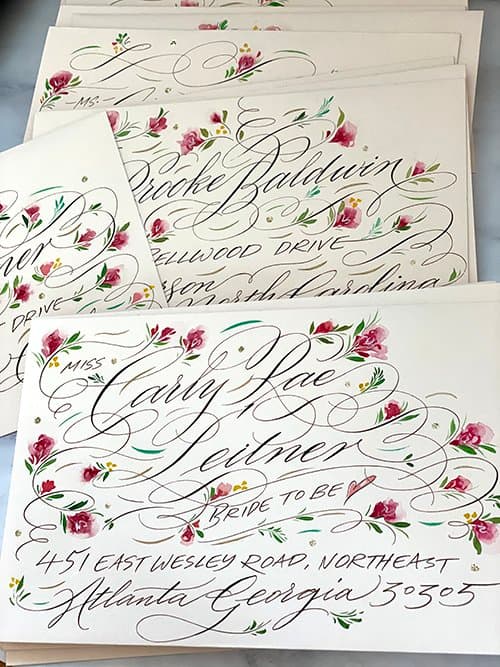 MS.
Brooke Baldwin
BELLWOOD DRIVE
North Carolina
DRIVE
MISS
Carly Rae
Leitner
BRIDE TO BE
451 EAST WESLEY ROAD, NORTHEAST
Atlanta Georgia 30305